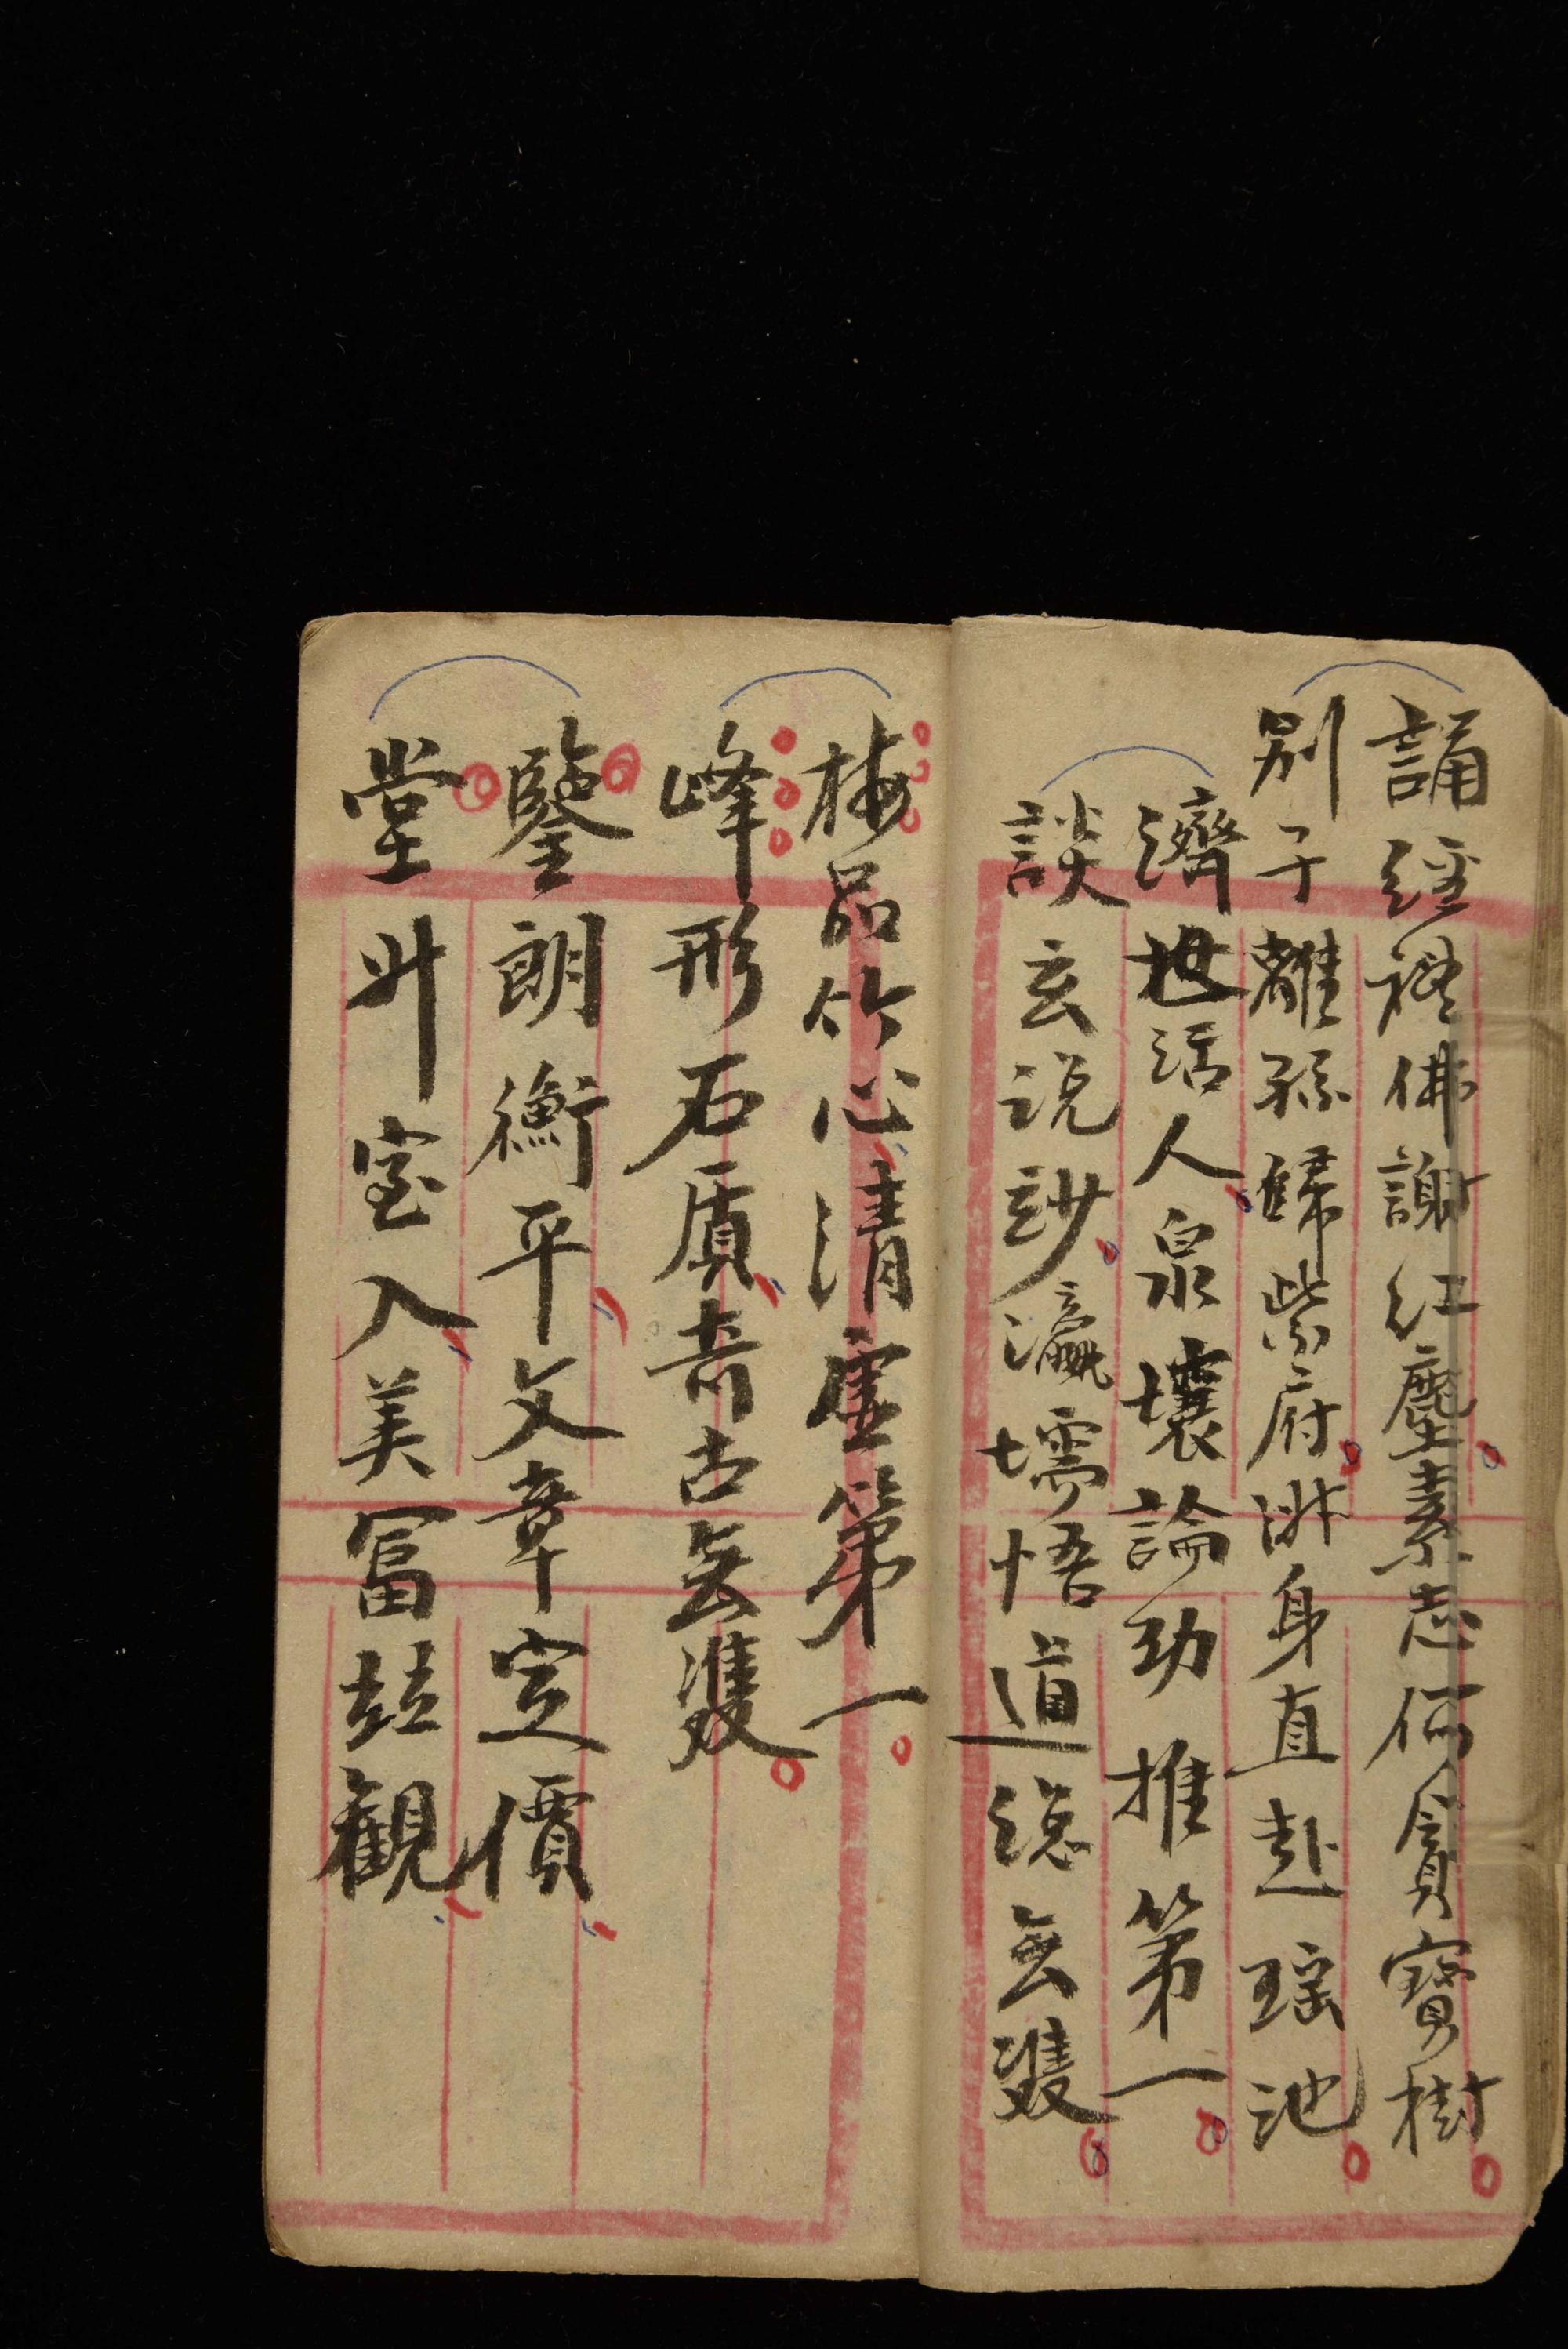 誦經禮佛謝紅塵素志何貪寶樹
別子離孫歸紫府淋身直赴瑶池
濟世活人泉壤論功推第一
談玄说妙瀛壖悟道总無雙
梅品竹心清虛第一
峰形石質奇古無雙
鑒朗衡平文章定價
堂升室入美富玆觀